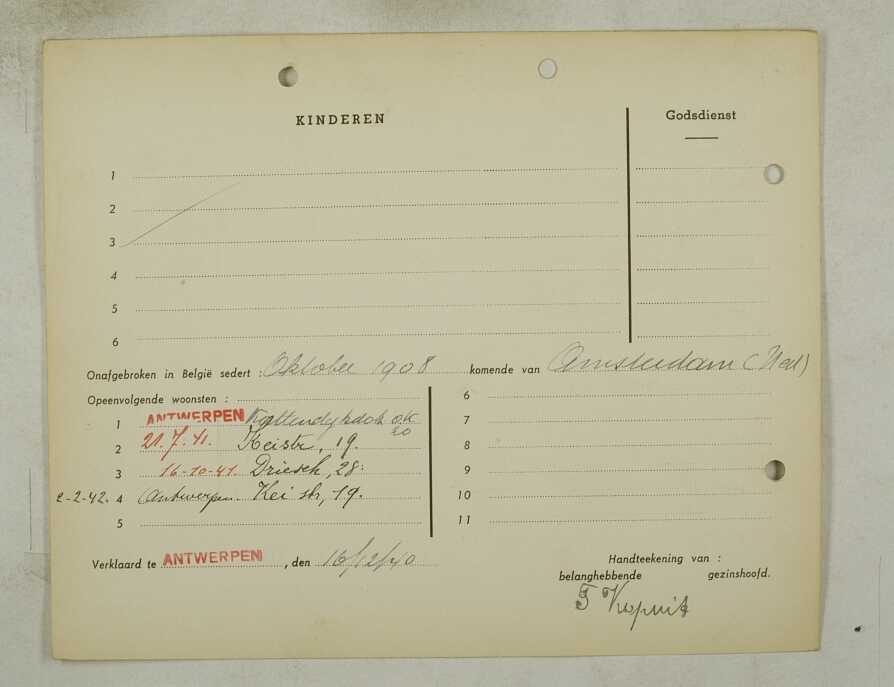 KINDEREN Godsdienst
1
2
3
4
5
6
Onafgebroken in België sedert : Oktober 1908 komende van Amsterdam (Ned)
Opeenvolgende woonsten :
1 ANTWERPEN Kattendijkdok O.K. 20
2 21.7.41. Keistr, 19.
3 16-10-41. Driesch, 28:
2-2-42. 4 Antwerpen. Kei str, 19.
5
6
7
8
9
10
11
Verklaard te ANTWERPEN , den 16/12/40
Handteekening van :
belanghebbende gezinshoofd.